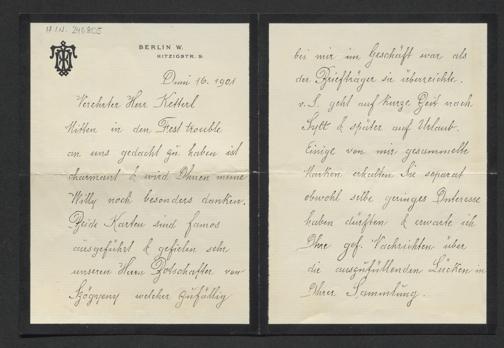 H.I.N. 240805
BERLIN W.
HITZIGSTR. 9.
Juni 16. 1901
Verehrter Herr Ketterl
Mitten in den Fest trouble
an uns gedacht zu haben ist
charmant & wird Ihnen meine
Willy noch besonders danken.
Beide Karten sind famos
ausgeführt & gefielen sehr
unseren Herrn Botschafter von
Szögyeny welcher zufällig
bei mir im Geschäft war als
der Briefträger sie überreichte.
v. S. geht auf kurze Zeit nach
Sylt & später auf Urlaub.
Einige von mir gesammelte
Marken erhalten Sie separat
obwohl selbe geringes Interesse
haben dürften & erwarte ich
Ihre gef. Nachrichten über
die auszufüllenden Lücken in
Ihrer Sammlung.